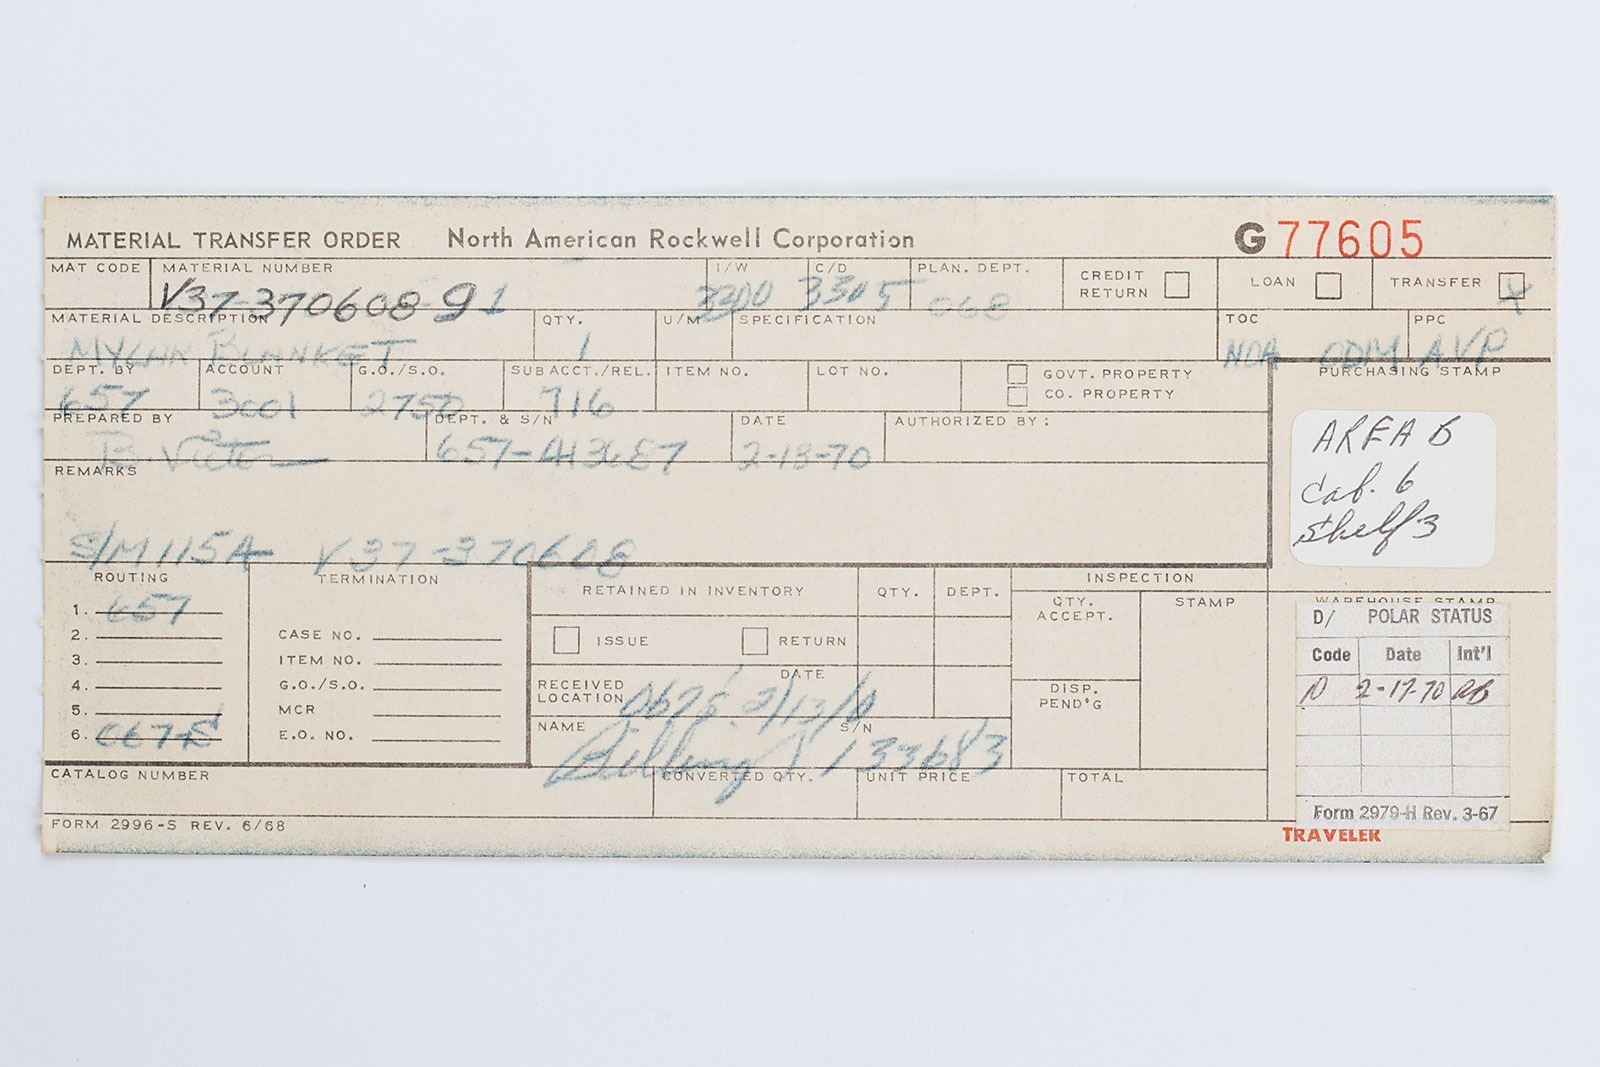 MATERIAL TRANSFER ORDER North American Rockwell Corporation G 77605
MAT CODE MATERIAL NUMBER I/W C/D PLAN. DEPT. CREDIT RETURN LOAN TRANSFER X
V37-370608-91 3200 3305 068
MATERIAL DESCRIPTION QTY. U/M SPECIFICATION TOC PPC
MYLAR BLANKET 1 NOA ODM AVP
DEPT. BY ACCOUNT G.O./S.O. SUB ACCT./REL. ITEM NO. LOT NO. GOVT. PROPERTY PURCHASING STAMP
CO. PROPERTY
657 3001 2750 716
PREPARED BY DEPT. & S/N DATE AUTHORIZED BY:
657- 2-13-70
AREA 6
Cab. 6
Shelf 3
REMARKS
S/M 115A V37-370608
ROUTING TERMINATION RETAINED IN INVENTORY QTY. DEPT. INSPECTION
QTY. ACCEPT. STAMP WAREHOUSE STAMP
1. 657
2. CASE NO. ISSUE RETURN
3. ITEM NO.
4. G.O./S.O. RECEIVED LOCATION DATE DISP. PEND'G
5. MCR
6. E.O. NO. NAME S/N
133683
D/ POLAR STATUS
Code Date Int'l
2-17-70
Form 2979-H Rev. 3-67
CATALOG NUMBER CONVERTED QTY. UNIT PRICE TOTAL
FORM 2996-S REV. 6/68 TRAVELER